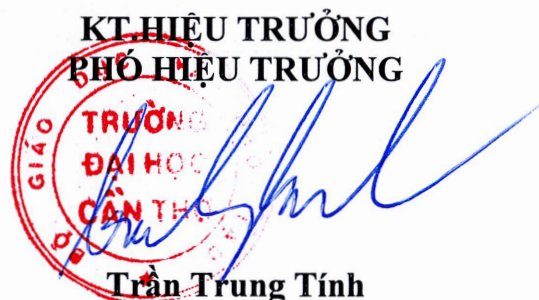 KT.HIỆU TRƯỞNG
PHÓ HIỆU TRƯỞNG
GIÁO
TRƯỜNG
ĐẠI HỌC
CẦN THƠ
Trần Trung Tính